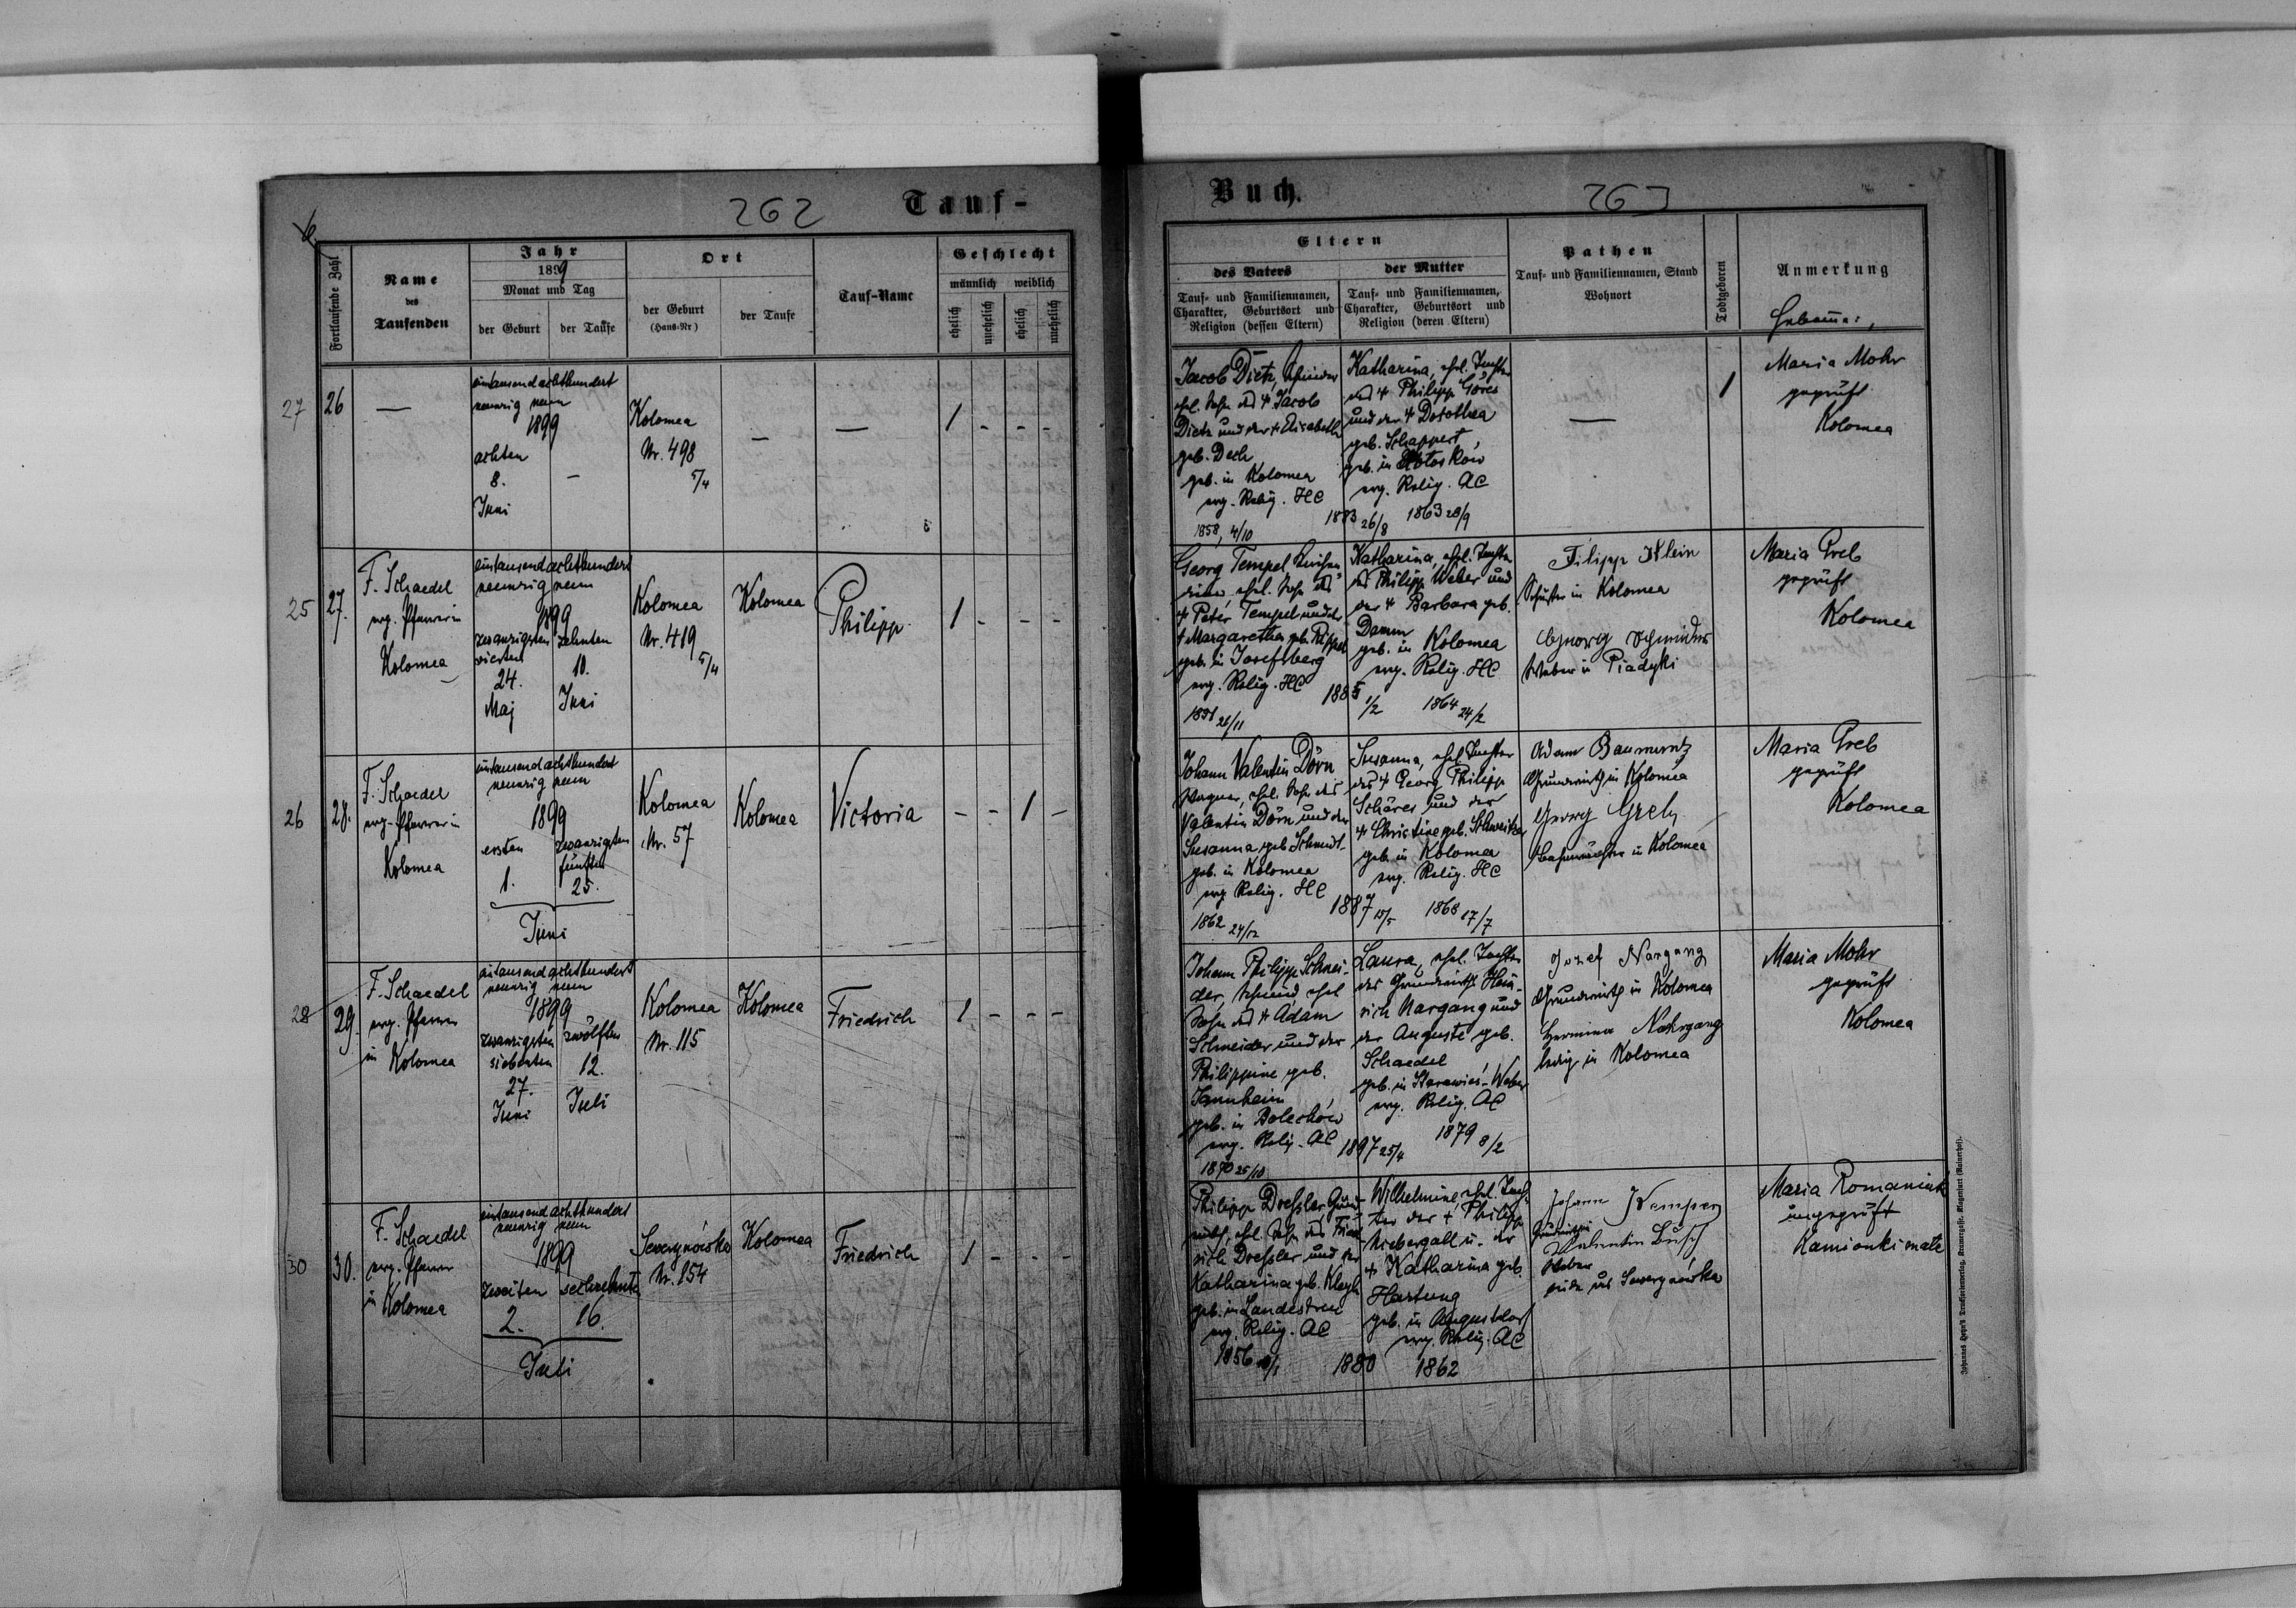 262
Tauf-
Fortlaufende Zahl
Name
des
Taufenden
Jahr
1899
Monat und Tag
der Geburt
der Taufe
Ort
der Geburt
(Haus-Nr)
der Taufe
Tauf-Name
Geschlecht
männlich weiblich
ehelich
unehelich
ehelich
unehelich
27 26
—
eintausend achthundert
neunzig neun
1899
achten
8.
Juni
—
Kolomea
Nr. 498
5/4
—
—
1 - - -
25 27.
F. Schaedel
evg. Pfarrer in
Kolomea
eintausend achthundert
neunzig neun
1899
zwanzigsten zehnten
vierten
24. 10.
Maj Juni
Kolomea
Nr. 419
5/4
Kolomea
Philipp
1 - - -
26 28.
F. Schaedel
evg. Pfarrer in
Kolomea
eintausend achthundert
neunzig neun
1899
ersten zwanzigsten
fünften
1. 25.
Juni
Kolomea
Nr. 57
Kolomea
Victoria
- - 1 -
28 29.
F. Schaedel
evg. Pfarrer
in Kolomea
eintausend achthundert
neunzig neun
1899
zwanzigsten zwölften
siebenten
27. 12.
Juni Juli
Kolomea
Nr. 115
Kolomea
Friedrich
1 - - -
30 30.
F. Schaedel
evg. Pfarrer
in Kolomea
eintausend achthundert
neunzig neun
1899
zweiten sechzehnten
2. 16.
Juli
Sewerynówka
Nr. 154
Kolomea
Friedrich
1 - - -
Buch.
263
Eltern
des Vaters
Tauf- und Familiennamen,
Charakter, Geburtsort und
Religion (dessen Eltern)
der Mutter
Tauf- und Familiennamen,
Charakter, Geburtsort und
Religion (deren Eltern)
Pathen
Tauf- und Familiennamen, Stand
Wohnort
Todtgeboren
Anmerkung
Jacob Dietz,
ehl. Sohn des + Jacob
Dietz und der + Elisabeth
geb. Dech
geb. in Kolomea
evg. Relig. HC
1858, 4/10
1883 26/8
Katharina, ehel. Tochter
des + Philipp Göres
und der + Dorothea
geb. Schappert,
geb. in
evg. Relig. AC
1863 28/9
—
1
Maria Mohr
geprüft
Kolomea
Georg Tempel
ehel. Sohn des
+ Peter Tempel und der
+ Margaretha geb. Rippel
geb. in Josefsberg
evg. Relig. HC
26/11
1885 1/2
Katharina, ehel. Tochter
des Philipp Weber und
der + Barbara geb.
Damm
geb. in Kolomea
evg. Relig. HC
1864 24/2
Filipp Klein
Schuster in Kolomea
Georg Schneider
Weber in Piadyki
Maria Greb
geprüft
Kolomea
Johann Valentin Dörn
Wagner, ehl. Sohn des
Valentin Dörn und der
Susanna geb. Schmidt
geb. in Kolomea
evg. Relig. HC
1862 24/12
1887 15/5
Susanna, ehel. Tochter
des + Georg Philipp
Schärer und der
+ Christine geb. Schweitzer
geb. in Kolomea
evg. Relig. HC
1868 17/7
Adam Baumuntz
Grundwirth in Kolomea
Georg Greb
Bahnwächter in Kolomea
Maria Greb
geprüft
Kolomea
Johann Philipp Schnei-
der, Schmied, ehel
Sohn des + Adam
Schneider und der
Philippine geb.
Tannheim
geb. in Bolechów
evg. Relig. AC
1870 25/10
1897 25/4
Laura, ehel. Tochter
des Grundwirth Hein-
rich Nargang und
der Auguste geb.
Schaedel
geb. in
evg. Relig. AC
1879 8/2
Jozef Nargang
Grundwirth in Kolomea
Hermina Nahrgang
ledig in Kolomea
Maria Mohr
geprüft
Kolomea
Philipp Dreßler Grund-
wirth, ehl. Sohn des Fried-
rich Dreßler und der
Katharina geb. Kleyh
geb. in Landestreu
evg. Relig. AC
1856
1880
Wilhelmine, ehel. Toch-
ter der + Philipp
Niebergall u. der
+ Katharina geb.
Hartung
geb. in Augustdorf
evg. Relig. AC
1862
Johann Kemper
Grundwirth
Valentin Busch
Weber
beide aus Sewerynówka
Maria Romaniuk
ungeprüft
Kamionki małe